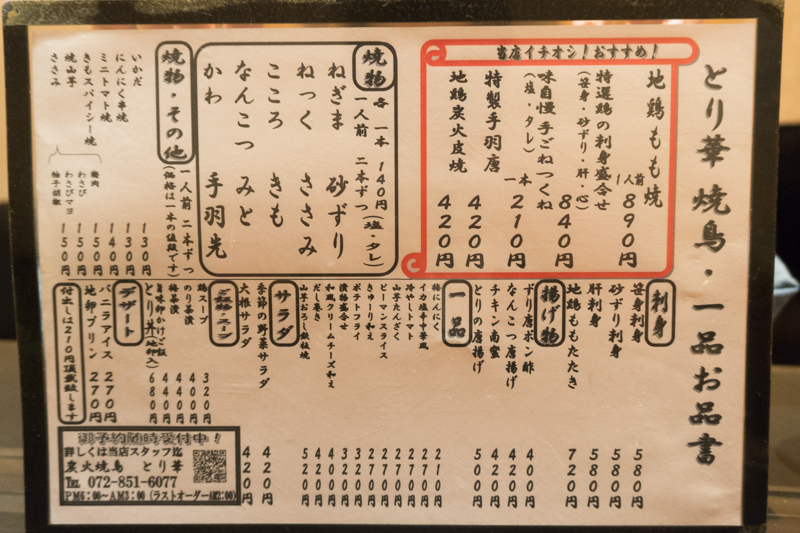 とり華 焼鳥・一品お品書
当店イチオシ!おすすめ!
地鶏もも焼 1人前 890円
特選鶏の刺身盛合せ
(笹身・砂ずり・肝・心) 840円
味自慢手ごねつくね
(塩・タレ) 一本 210円
特製手羽唐 420円
地鶏炭火皮焼 420円
焼物 各一本 140円(塩・タレ)
一人前 二本ずつ
ねぎま 砂ずり
ねっく ささみ
こころ きも
なんこつ みと
かわ 手羽先
焼物・その他 一人前 二本ずつ
(価格は一本の値段です)
いかだ 130円
にんにく串焼 130円
ミニトマト焼 140円
きもスパイシー焼 150円
焼山芋 150円
ささみ 梅肉
わさび
わさびマヨ
柚子胡椒 150円
刺身
笹身刺身 580円
砂ずり刺身 580円
肝刺身 580円
地鶏ももたたき 720円
揚げ物
ずり唐ポン酢 400円
なんこつ唐揚げ 420円
チキン南蛮 420円
とりの唐揚げ 500円
一品
梅にんにく 210円
イカ塩辛中華風
冷やしトマト
山芋たんざく
ピーマンスライス
きゅーり和え
和風クリームチーズ和え
ポテトフライ
漬物盛合せ
だし巻き
山芋おろし鉄板焼
サラダ
季節の野菜サラダ 420円
大根サラダ 420円
ご飯物・スープ
鶏スープ 320円
のり茶漬 440円
梅茶漬 440円
旨味卵かけご飯 440円
とり丼(地卵入) 680円
デザート
バニラアイス 270円
地卵プリン 270円
付出しは210円頂戴致します
御予約随時受付中!
詳しくは当店スタッフ迄
炭火焼鳥 とり華
℡ 072-851-6077
PM6:00~AM3:00(ラストオーダーAM2:00)